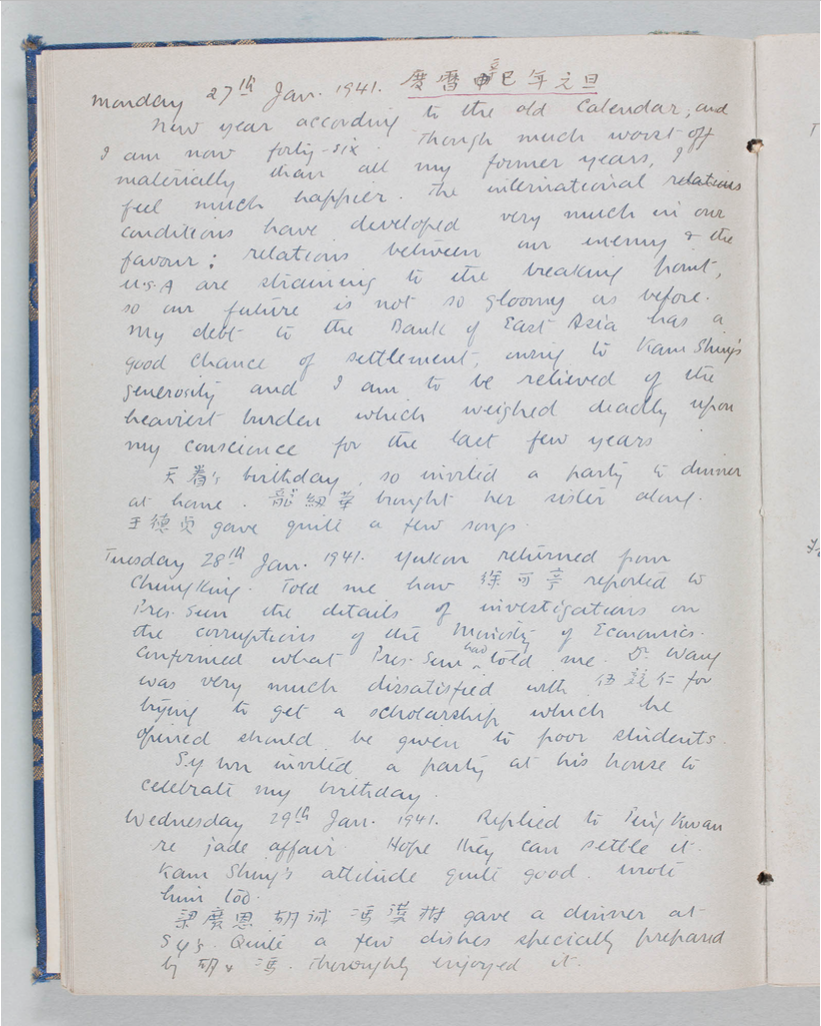 Monday 27th Jan. 1941. 庚曆辛巳年元旦
New year according to the old Calendar, and
I am now forty-six. Though much worst off
materially than all my former years, I
feel much happier. The international
conditions have developed very much in our
favour; relations between our enemy & the
U.S.A are straining to the breaking point,
so our future is not so gloomy as before.
My debt to the Bank of East Asia has a
good chance of settlement, owing to Kam Shing's
generosity and I am to be relieved of the
heaviest burden which weighed deadly upon
my conscience for the last few years
天眷's birthday, so invited a party to dinner
at home. 龍紉華 brought her sister along.
王德貞 gave quite a few songs.
Tuesday 28th Jan. 1941. Yukon returned from
Chungking. Told me how 徐可亭 reported to
Pres. Sun the details of investigations on
the corruptions of the Ministry of Economics.
Confirmed what Pres. Sun had told me. Dr Wang
was very much dissatisfied with 伍 仁 for
trying to get a scholarship which he
opined should be given to poor students.
Sy won invited a party at his house to
celebrate my birthday.
Wednesday 29th Jan. 1941. Replied to Ping Kwan
re jade affair. Hope they can settle it.
Kam Shing's attitude quite good. Wrote
him too.
梁慶恩 胡誠 馮漢樹 gave a dinner at
Sy's. Quite a few dishes specially prepared
by 胡 & 馮. Thoroughly enjoyed it.